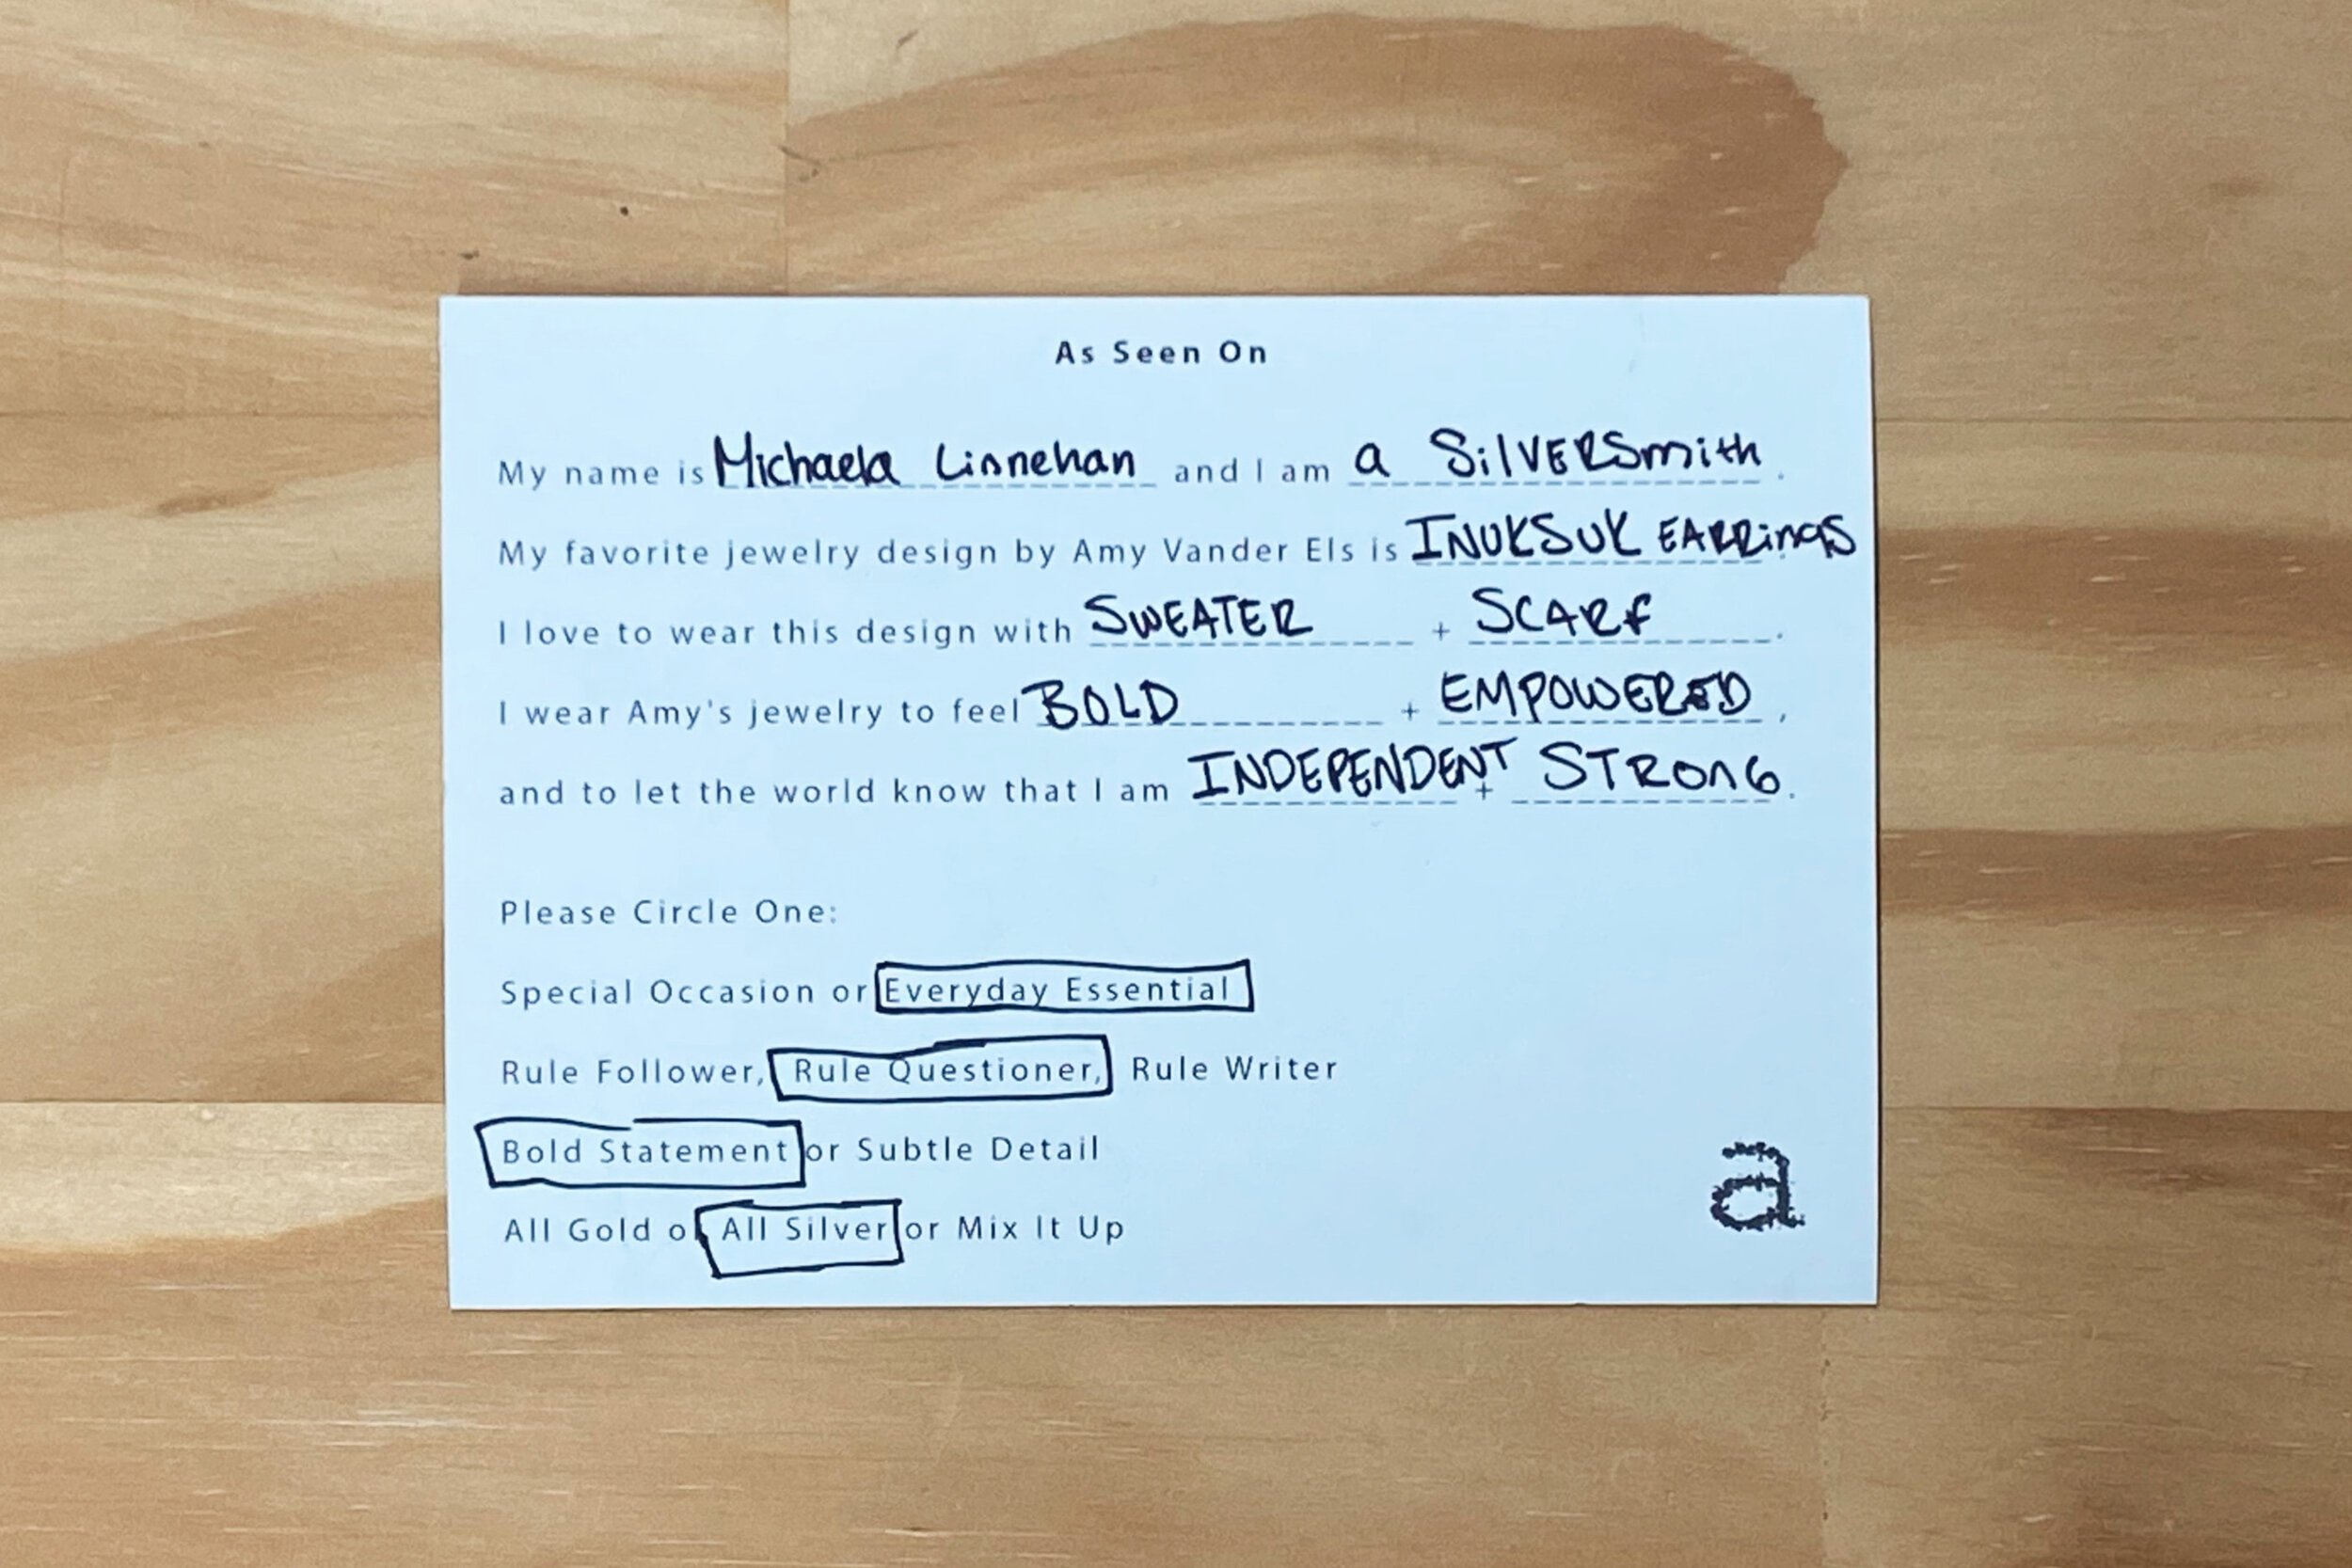 As Seen On
My name is Michaela Linnehan and I am a SilVERSmith.
My favorite jewelry design by Amy Vander Els is INUKSUK EARRingS.
I love to wear this design with SWEATER + SCARf.
I wear Amy's jewelry to feel BOLD + EMPOWERED,
and to let the world know that I am INDEPENDENT + STROnG.
Please Circle One:
Special Occasion or Everyday Essential
Rule Follower, Rule Questioner, Rule Writer
Bold Statement or Subtle Detail
All Gold or All Silver or Mix It Up
a